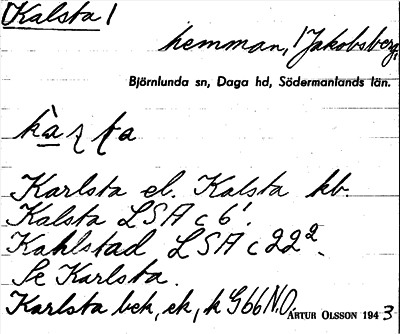 Kalsta /
hemman, / Jakobsberg,
Björnlunda sn, Daga hd, Södermanlands län.
Karlsta el. Kalsta hb.
Kalsta LSA c 6¹.
Kahlstad LSA c 22².
Se Karlsta.
Karlsta bek, ek, k G66 N.O.
ARTUR OLSSON 1943